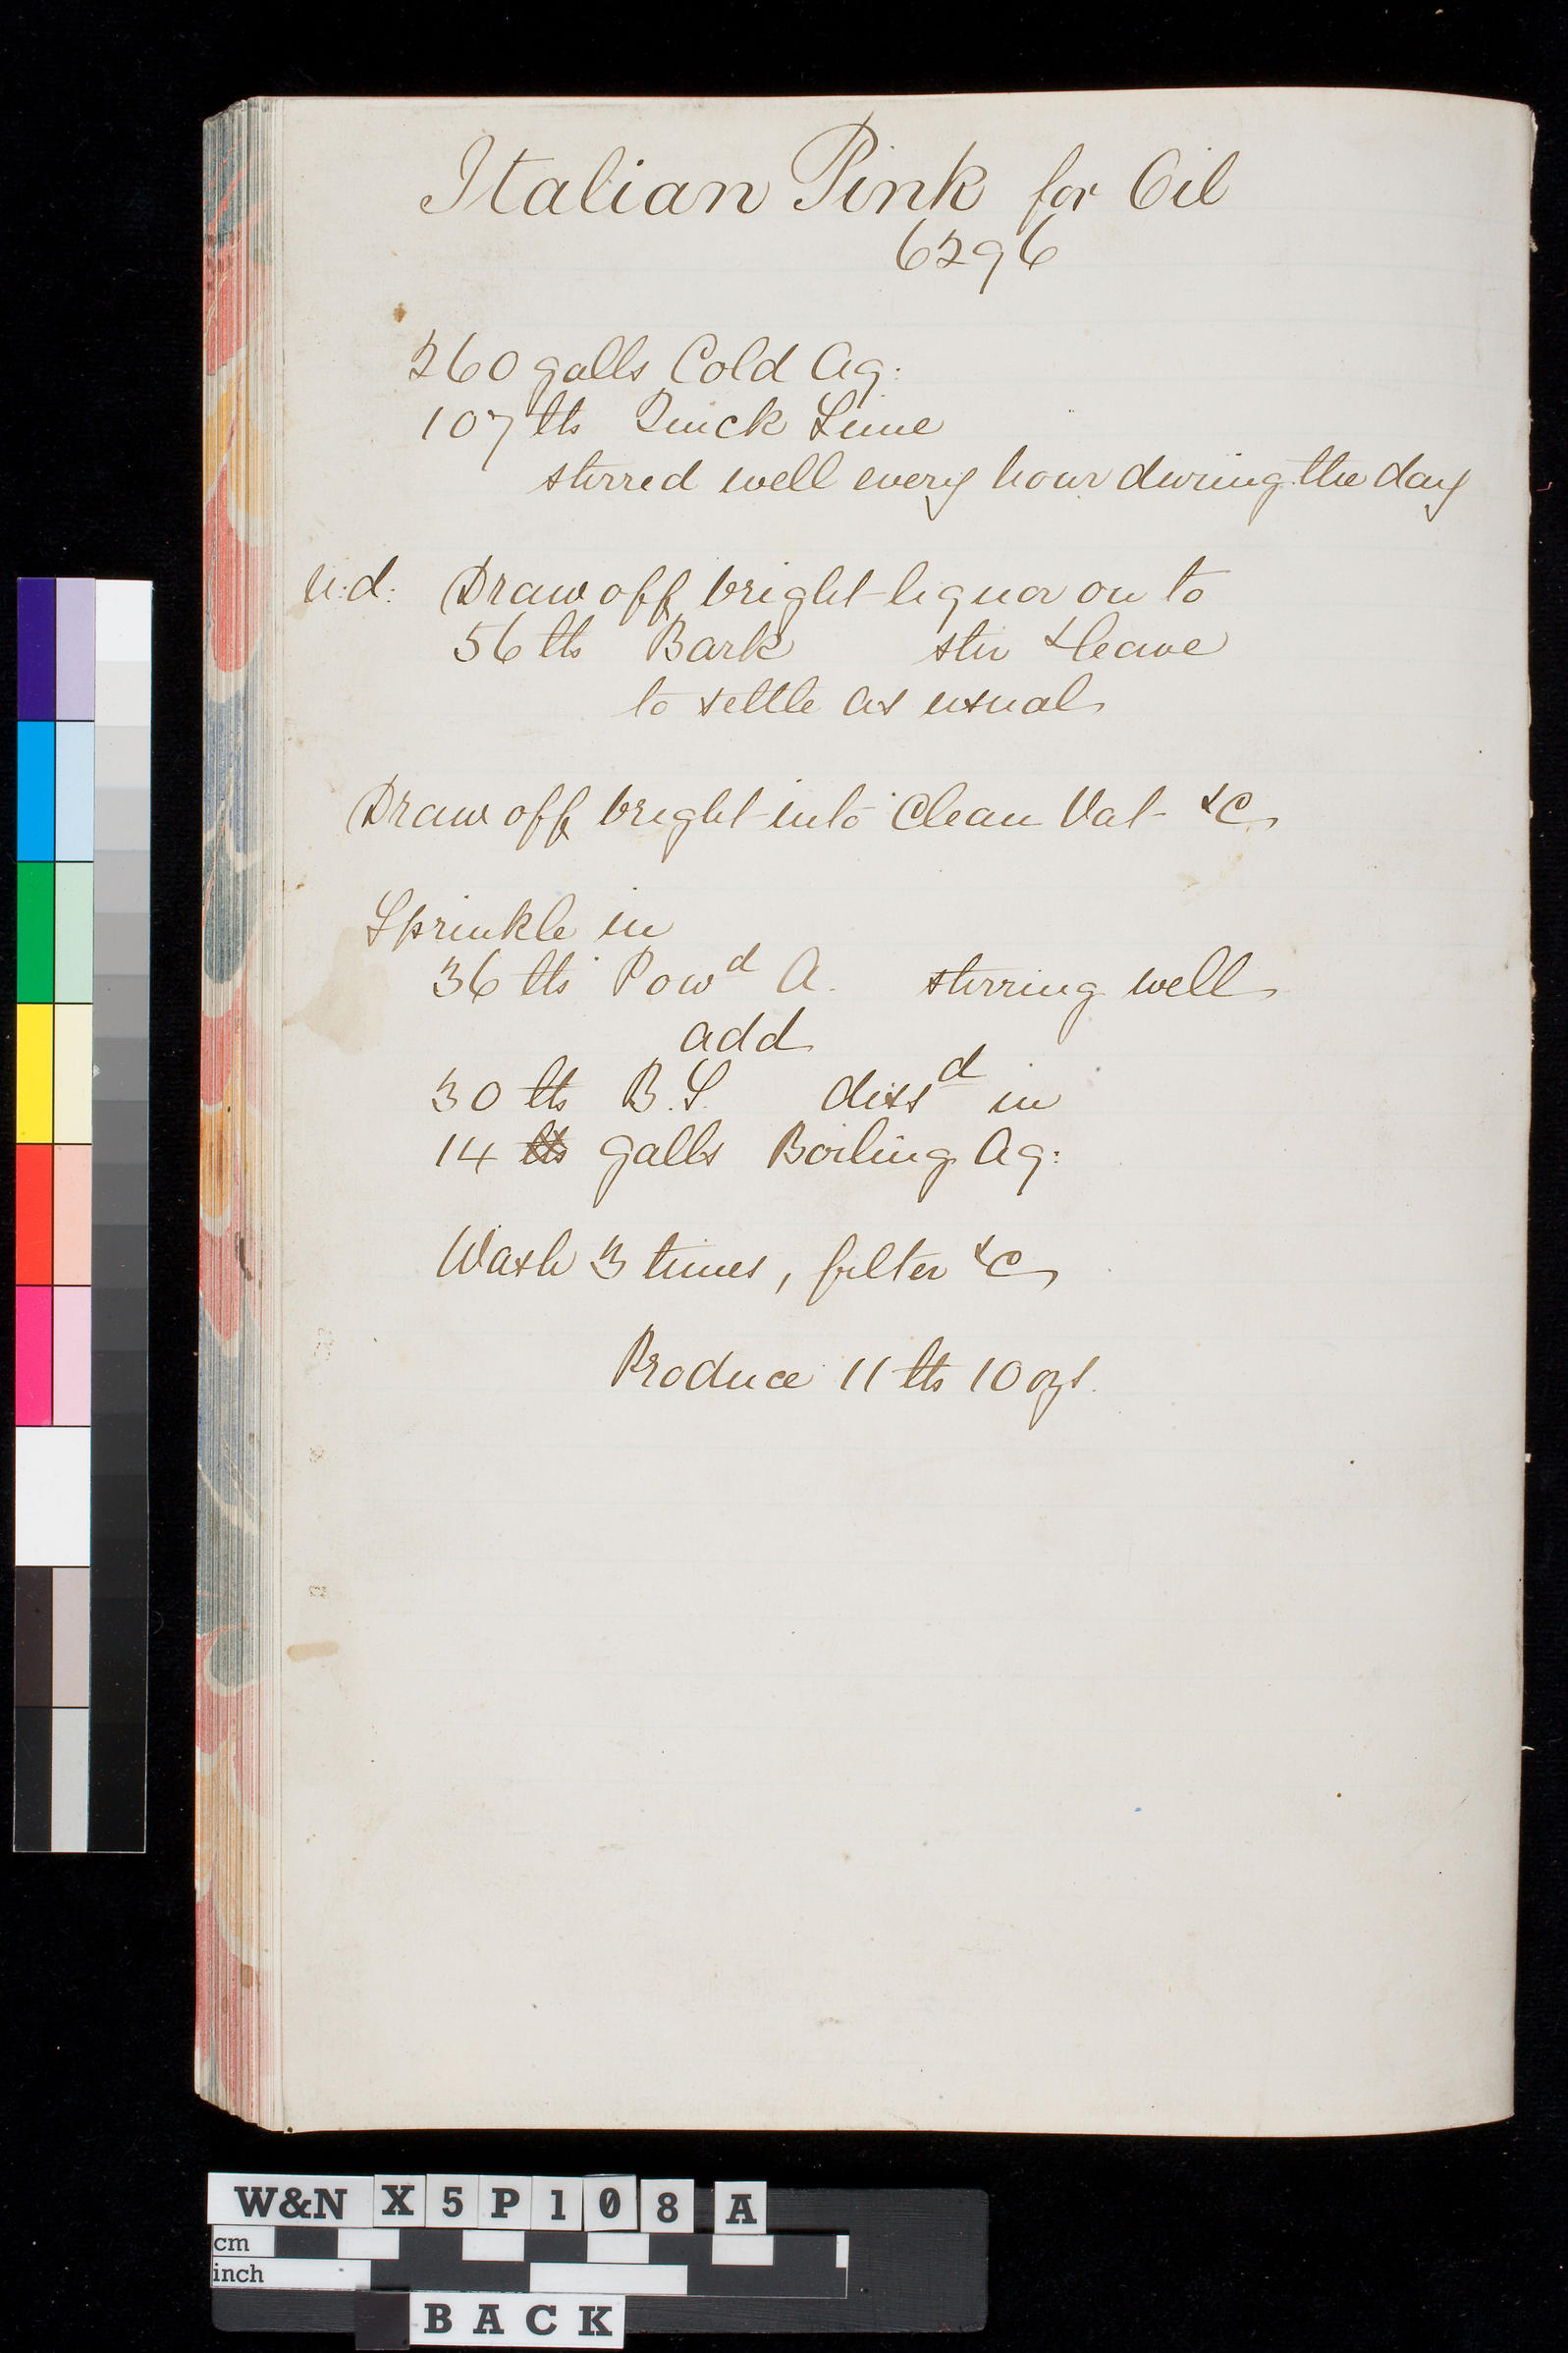 Italian Pink for Oil
6296
260 galls Cold Aq:
107 lbs Quick Lime
stirred well every hour during the day
n:d: Draw off bright liquor on to
56 lbs Bark stir & leave
to settle as usual
Draw off bright into Clean Vat &C
Sprinkle in
36 lbs Powd A. stirring well
add
30 lbs B.S. dissd in
14 lbs galls Boiling Aq:
Wash 3 times, filter &C
Produce 11 lbs 10 ozs.
W&N X5P108 A
cm
inch
BACK